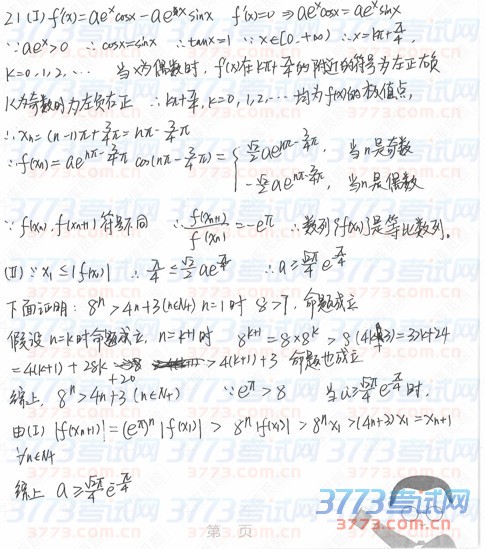 21.(I) f'(x)=ae^x cosx-ae^x sinx f'(x)=0 ⇒ ae^x cosx=ae^x sinx
∵ae^x>0 ∴cosx=sinx ∴tanx=1 ∵x∈[0,+∞) ∴x=kπ+π/4,
k=0,1,2,… 当k为偶数时,f'(x)在kπ+π/4的附近的符号为左正右负
k为奇数时为左负右正 ∴kπ+π/4,k=0,1,2,…均为f(x)的极值点,
∴xn=(n-1)π+π/4=nπ-3/4π
∴f(xn)=ae^(nπ-3/4π) cos(nπ-3/4π)={√2/2 ae^(nπ-3/4π), 当n是奇数
-√2/2 ae^(nπ-3/4π), 当n是偶数
∵f(xn),f(xn+1)符号不同 ∴f(xn+1)/f(xn)=-e^π ∴数列{f(xn)}是等比数列.
(II)∵x1≤|f(x1)| ∴π/4≤√2/2 ae^(π/4) ∴a≥√2π/4 e^(-π/4)
下面证明:8^n>4n+3(n∈N+) n=1时 8>7,命题成立
假设n=k时命题成立,n=k+1时 8^(k+1)=8×8^k>8(4k+3)=32k+24
=4(k+1)+28k+20>4(k+1)+3 命题也成立
综上,8^n>4n+3(n∈N+) ∵e^π>8 当a≥√2π/4 e^(-π/4)时,
由(I) |f(xn+1)|=(e^π)^n|f(x1)|>8^n|f(x1)|>8^n x1>(4n+3)x1=xn+1
∀n∈N+
综上 a≥√2π/4 e^(-π/4)
第 页
3773考试网
3773.com.cn